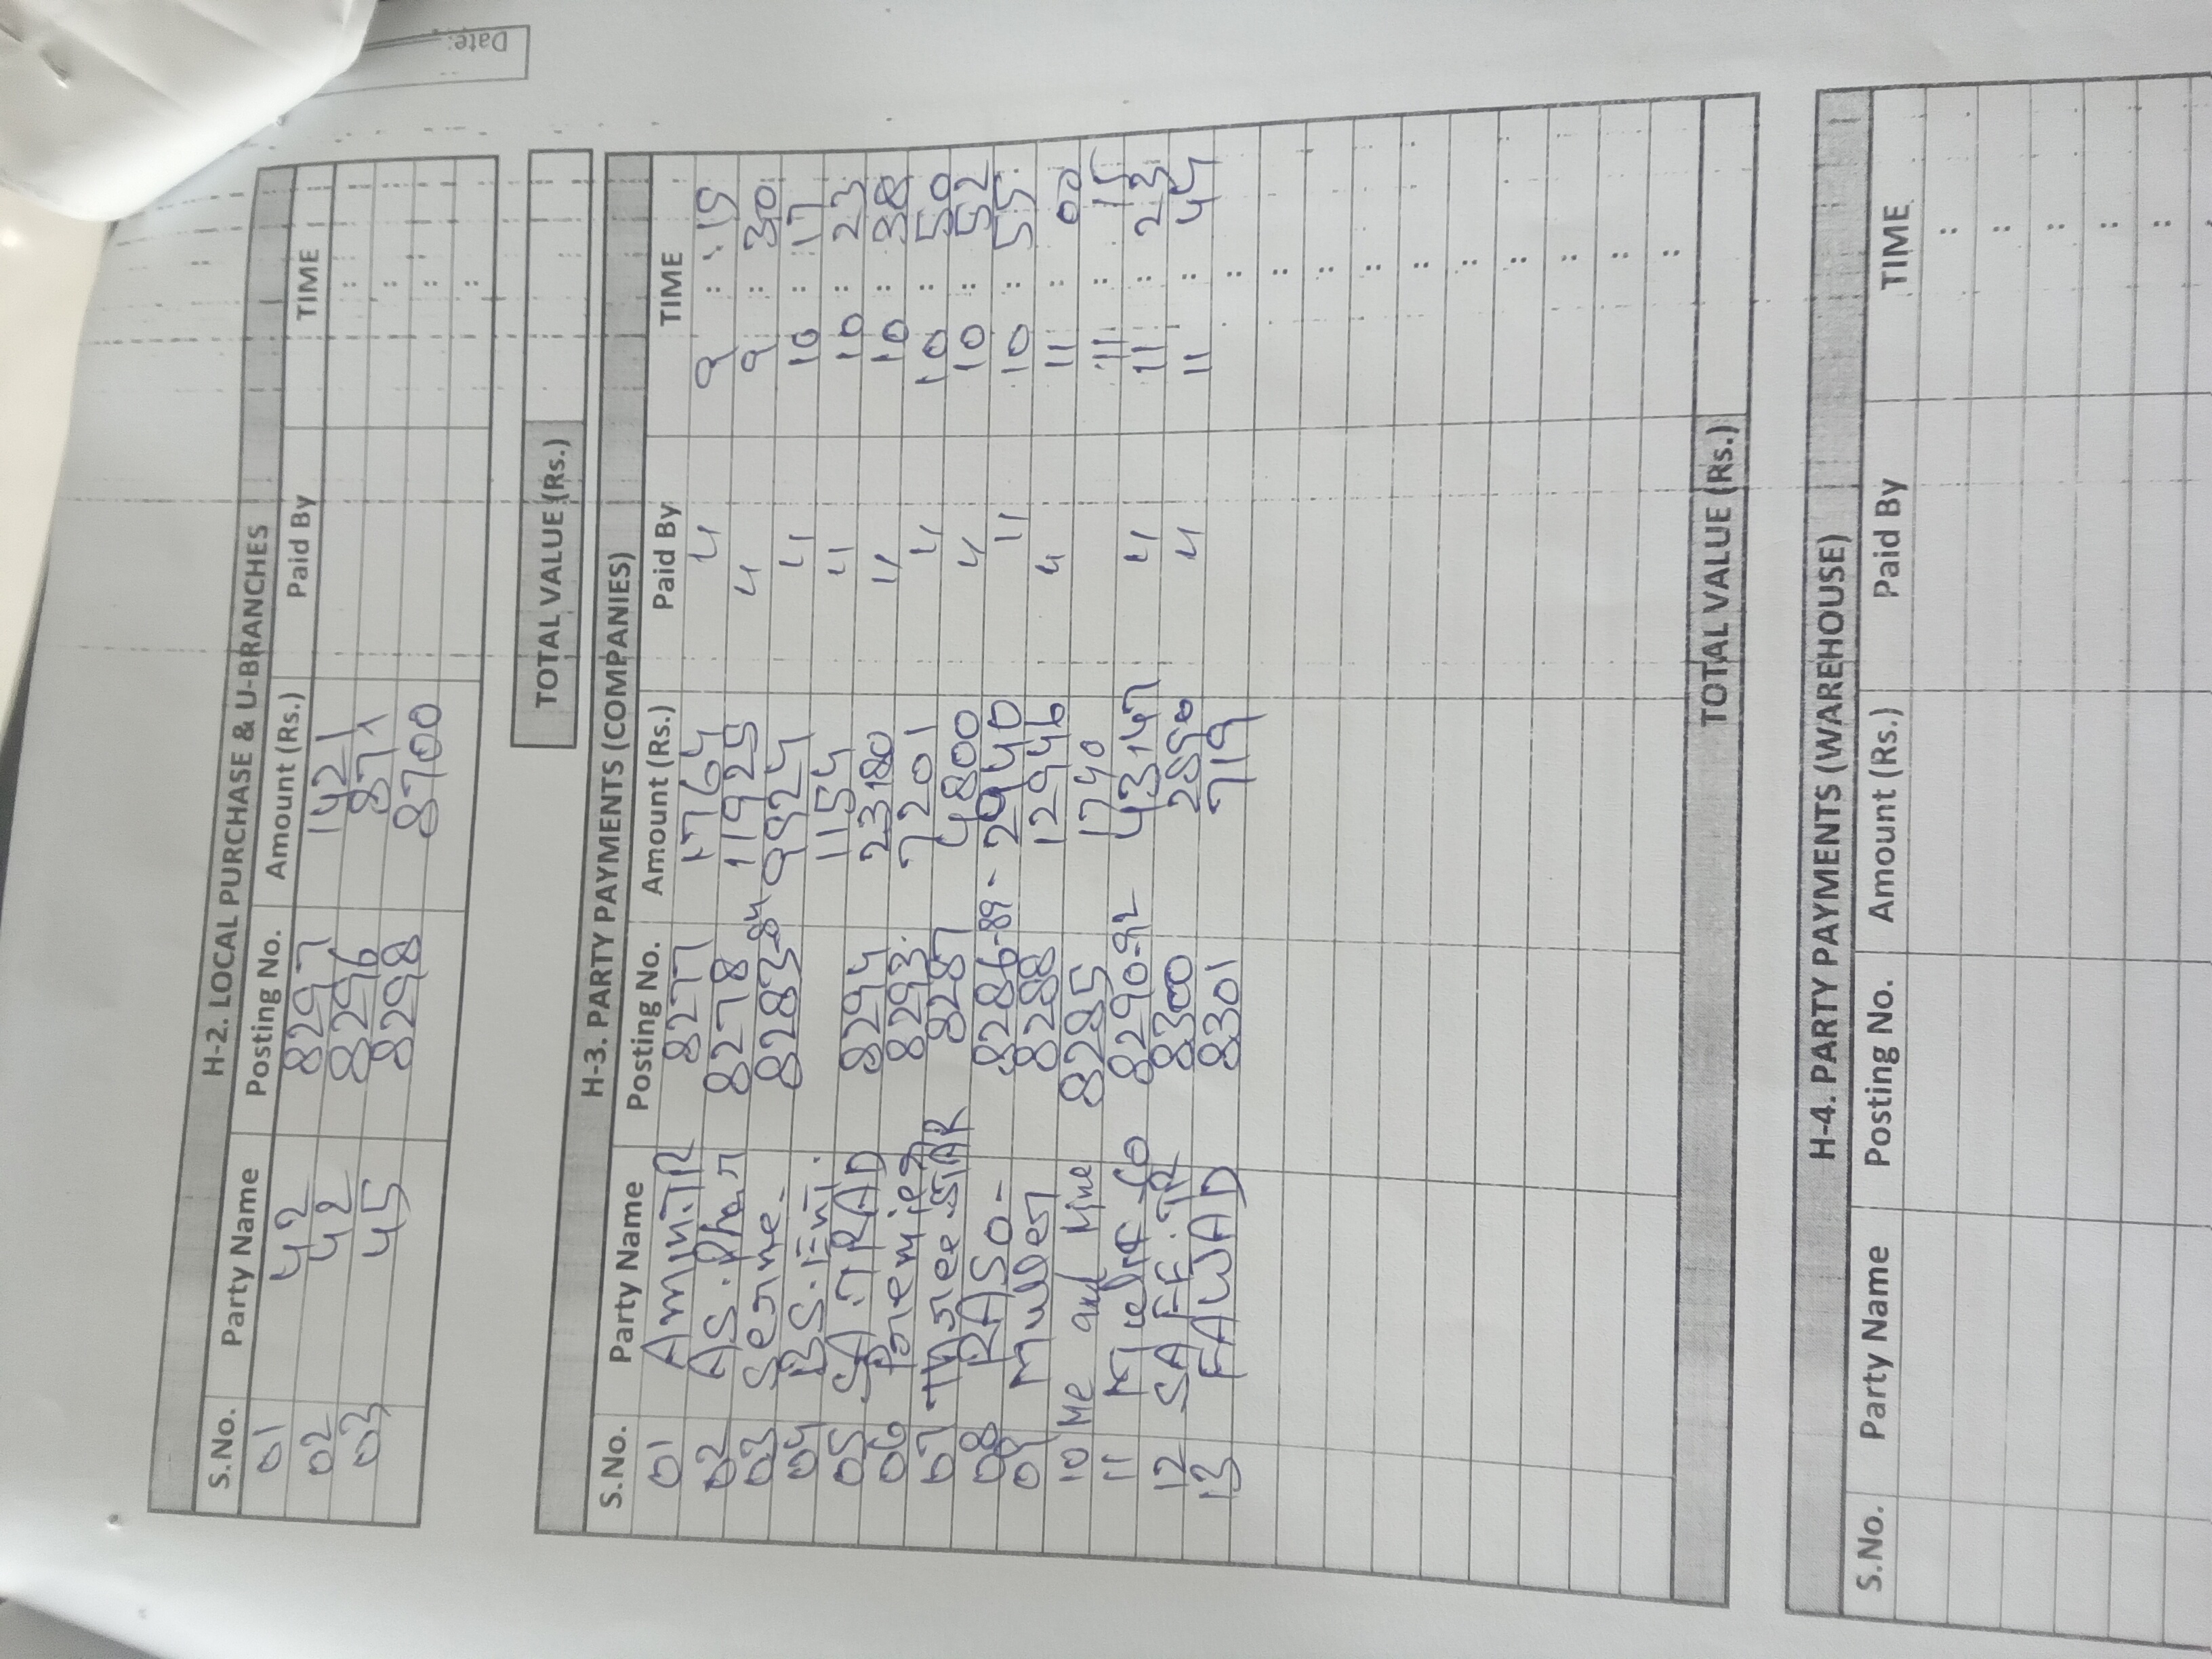 Date:
H-2. LOCAL PURCHASE & U-BRANCHES
S.No. Party Name Posting No. Amount (Rs.) Paid By TIME
01 42 8297 1421 :
02 42 8296 871 :
03 45 8298 8700 :
:
TOTAL VALUE (Rs.)
H-3. PARTY PAYMENTS (COMPANIES)
S.No. Party Name Posting No. Amount (Rs.) Paid By TIME
01 Amin.TR 8277 1764 4 9 : 19
02 AS. Phar 8278 11925 4 9 : 30
03 Serine- 8283-84 9924 4 10 : 17
04 BS. Ent. 1154 4 10 : 23
05 SA.TRAD 8294 23180 4 10 : 38
06 Premier 8293. 7201 4 10 : 50
07 Three STAR 8287 4800 4 10 : 52
08 RASO- 8286-89- 2940 11 10 : 55
09 Muller 8288 12946 4 11 : 00
10 Me and Mine 8285 1740 11 : 15
11 & Co 8290-92 43147 4 11 : 23
12 SAFE.TR 8300 2550 4 11 : 45
13 FAWAD 8301 719 :
TOTAL VALUE (Rs.)
H-4. PARTY PAYMENTS (WAREHOUSE)
S.No. Party Name Posting No. Amount (Rs.) Paid By TIME